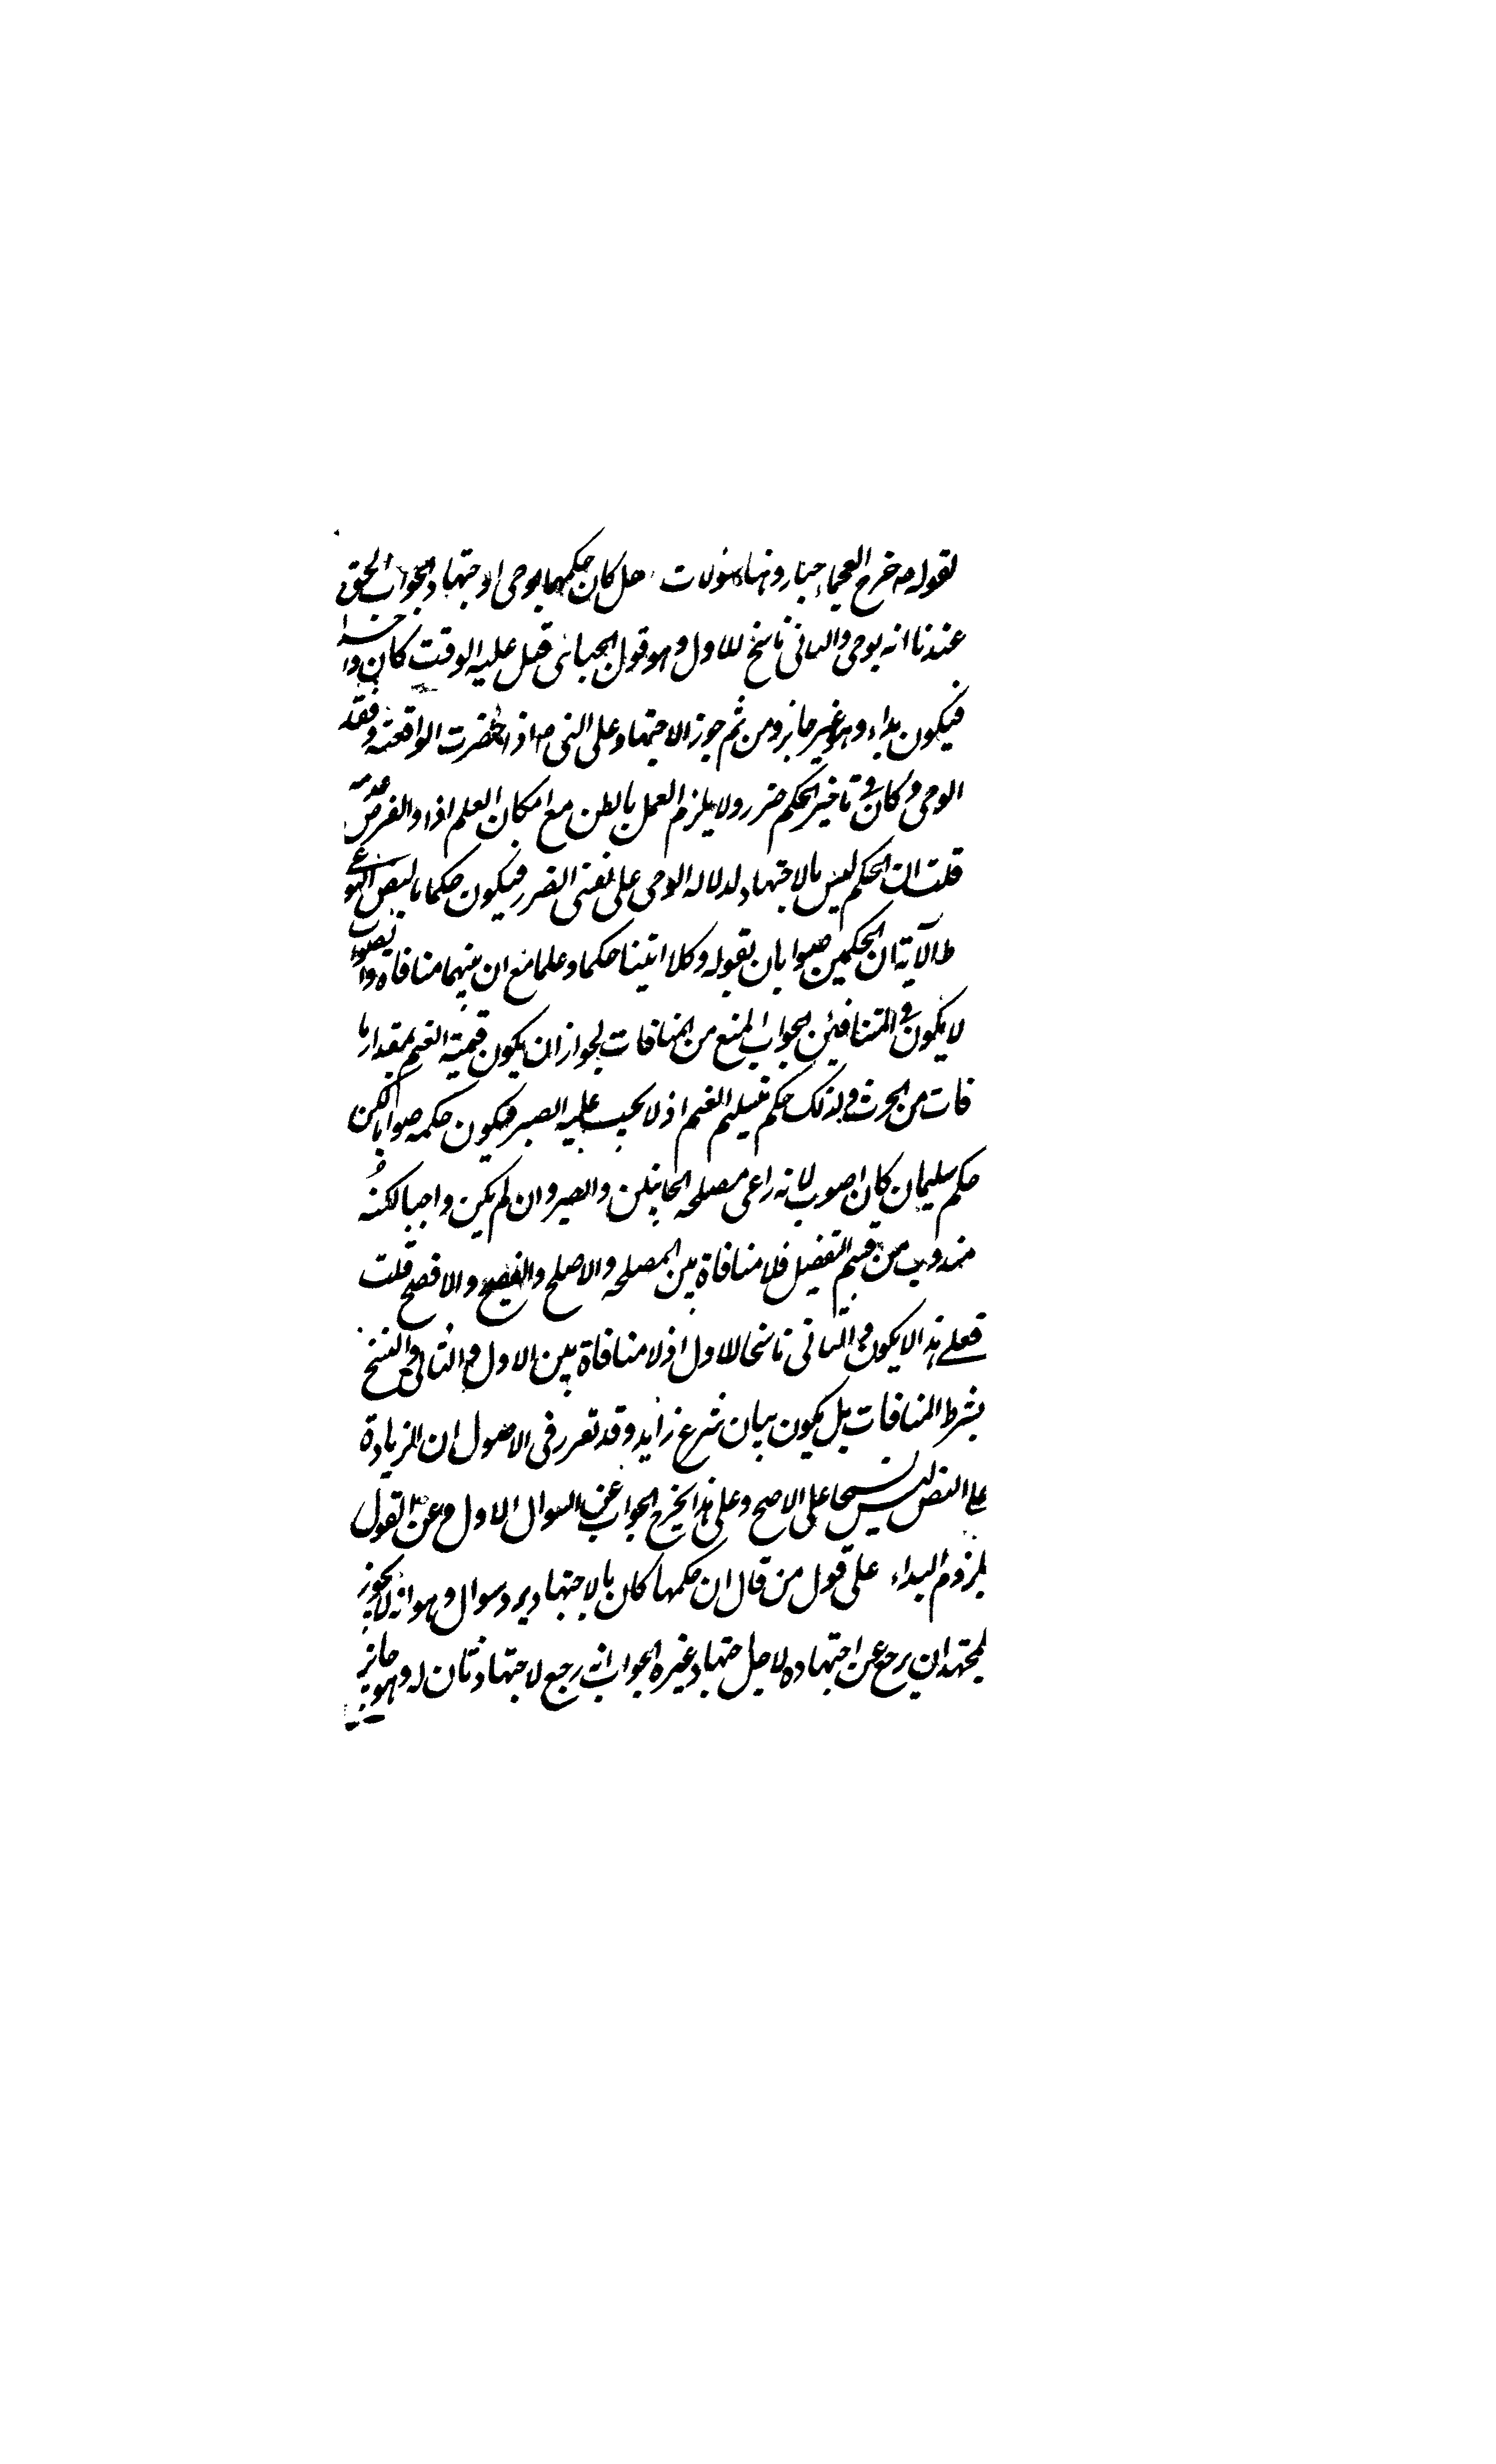 لقوله ص خرج العجماء جبار وههنا سؤلات هل كان حكمهما بوحى او اجتهاد الجواب الحق
عندنا انه بوحى والثانى ناسخ للاول وهو قول الجبائى قيل عليه الوقت كان واحدا
فيكون بداء وهو غير جايز ومن ثم جوز الاجتهاد على النبى ص اذا حضرت الواقعة وفقد
الوحى وكان فى تاخير الحكم ضرر ولا يلزم العمل بالظن مع امكان العلم اذا والفرض عدمه
قلت ان الحكم ليس بالاجتهاد لدلالة الوحى على نفى الضرر فيكون حكما بالنص النوعى
ط الآية ان الحكمين صوابان بقوله وكلا اتينا حكما وعلما مع ان بينهما منافاة والصواب
لا يكون فى المتنافيين الجواب المنع من المنافات لجواز ان يكون قيمة الغنم بمقدار ما
فات من الحرث فلذلك حكم بتسليم الغنم اذ لا يجب عليه الصبر فيكون حكمه صوابا لكن
حكم سليمان كان اصوب لانه راعى مصلحة الجانبين والصبر وان لم يكن واجبا لكنه
مندوب من قسم التفضيل فلا منافاة بين المصلحة والاصلح والفصيح والافصح قلت
فعلى هذا لا يكون الثانى ناسخا للاول اذ لا منافاة بين الاول والثانى وفى النسخ
بشرط المنافات بل يكون بيان شرع زايد وقد تقرر فى الاصول ان الزيادة
على النص ليس نسخا على الاصح وعلى هذا يخرج الجواب عن السوال الاول وعن القول
بلزوم البداء على قول من قال ان حكمهما كان بالاجتهاد يرد سوال وهو انه لا يجوز
لمجتهد ان يرجع عن اجتهاده لاجل اجتهاد غيره الجواب انه رجع لاجتهاد ثان له وهو جايز